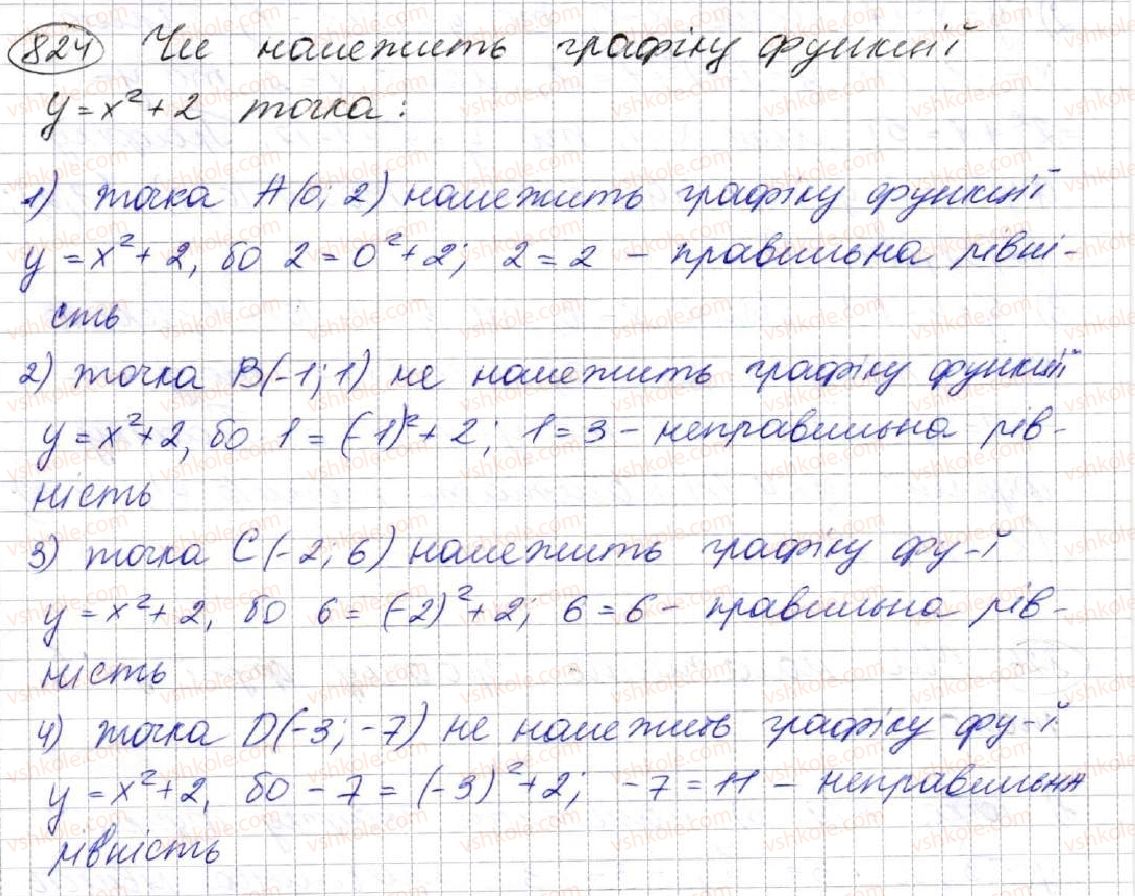 824 Чи належить графіку функції
y = x² + 2 точка:
1) точка A(0; 2) належить графіку функції
y = x² + 2, бо 2 = 0² + 2; 2 = 2 – правильна рівні-
сть
2) точка B(-1; 1) не належить графіку функції
y = x² + 2, бо 1 = (-1)² + 2; 1 = 3 – неправильна рів-
ність
3) точка C(-2; 6) належить графіку фу-ї
y = x² + 2, бо 6 = (-2)² + 2; 6 = 6 – правильна рів-
ність
4) точка D(-3; -7) не належить графіку фу-ї
y = x² + 2, бо -7 = (-3)² + 2; -7 = 11 – неправильна
рівність